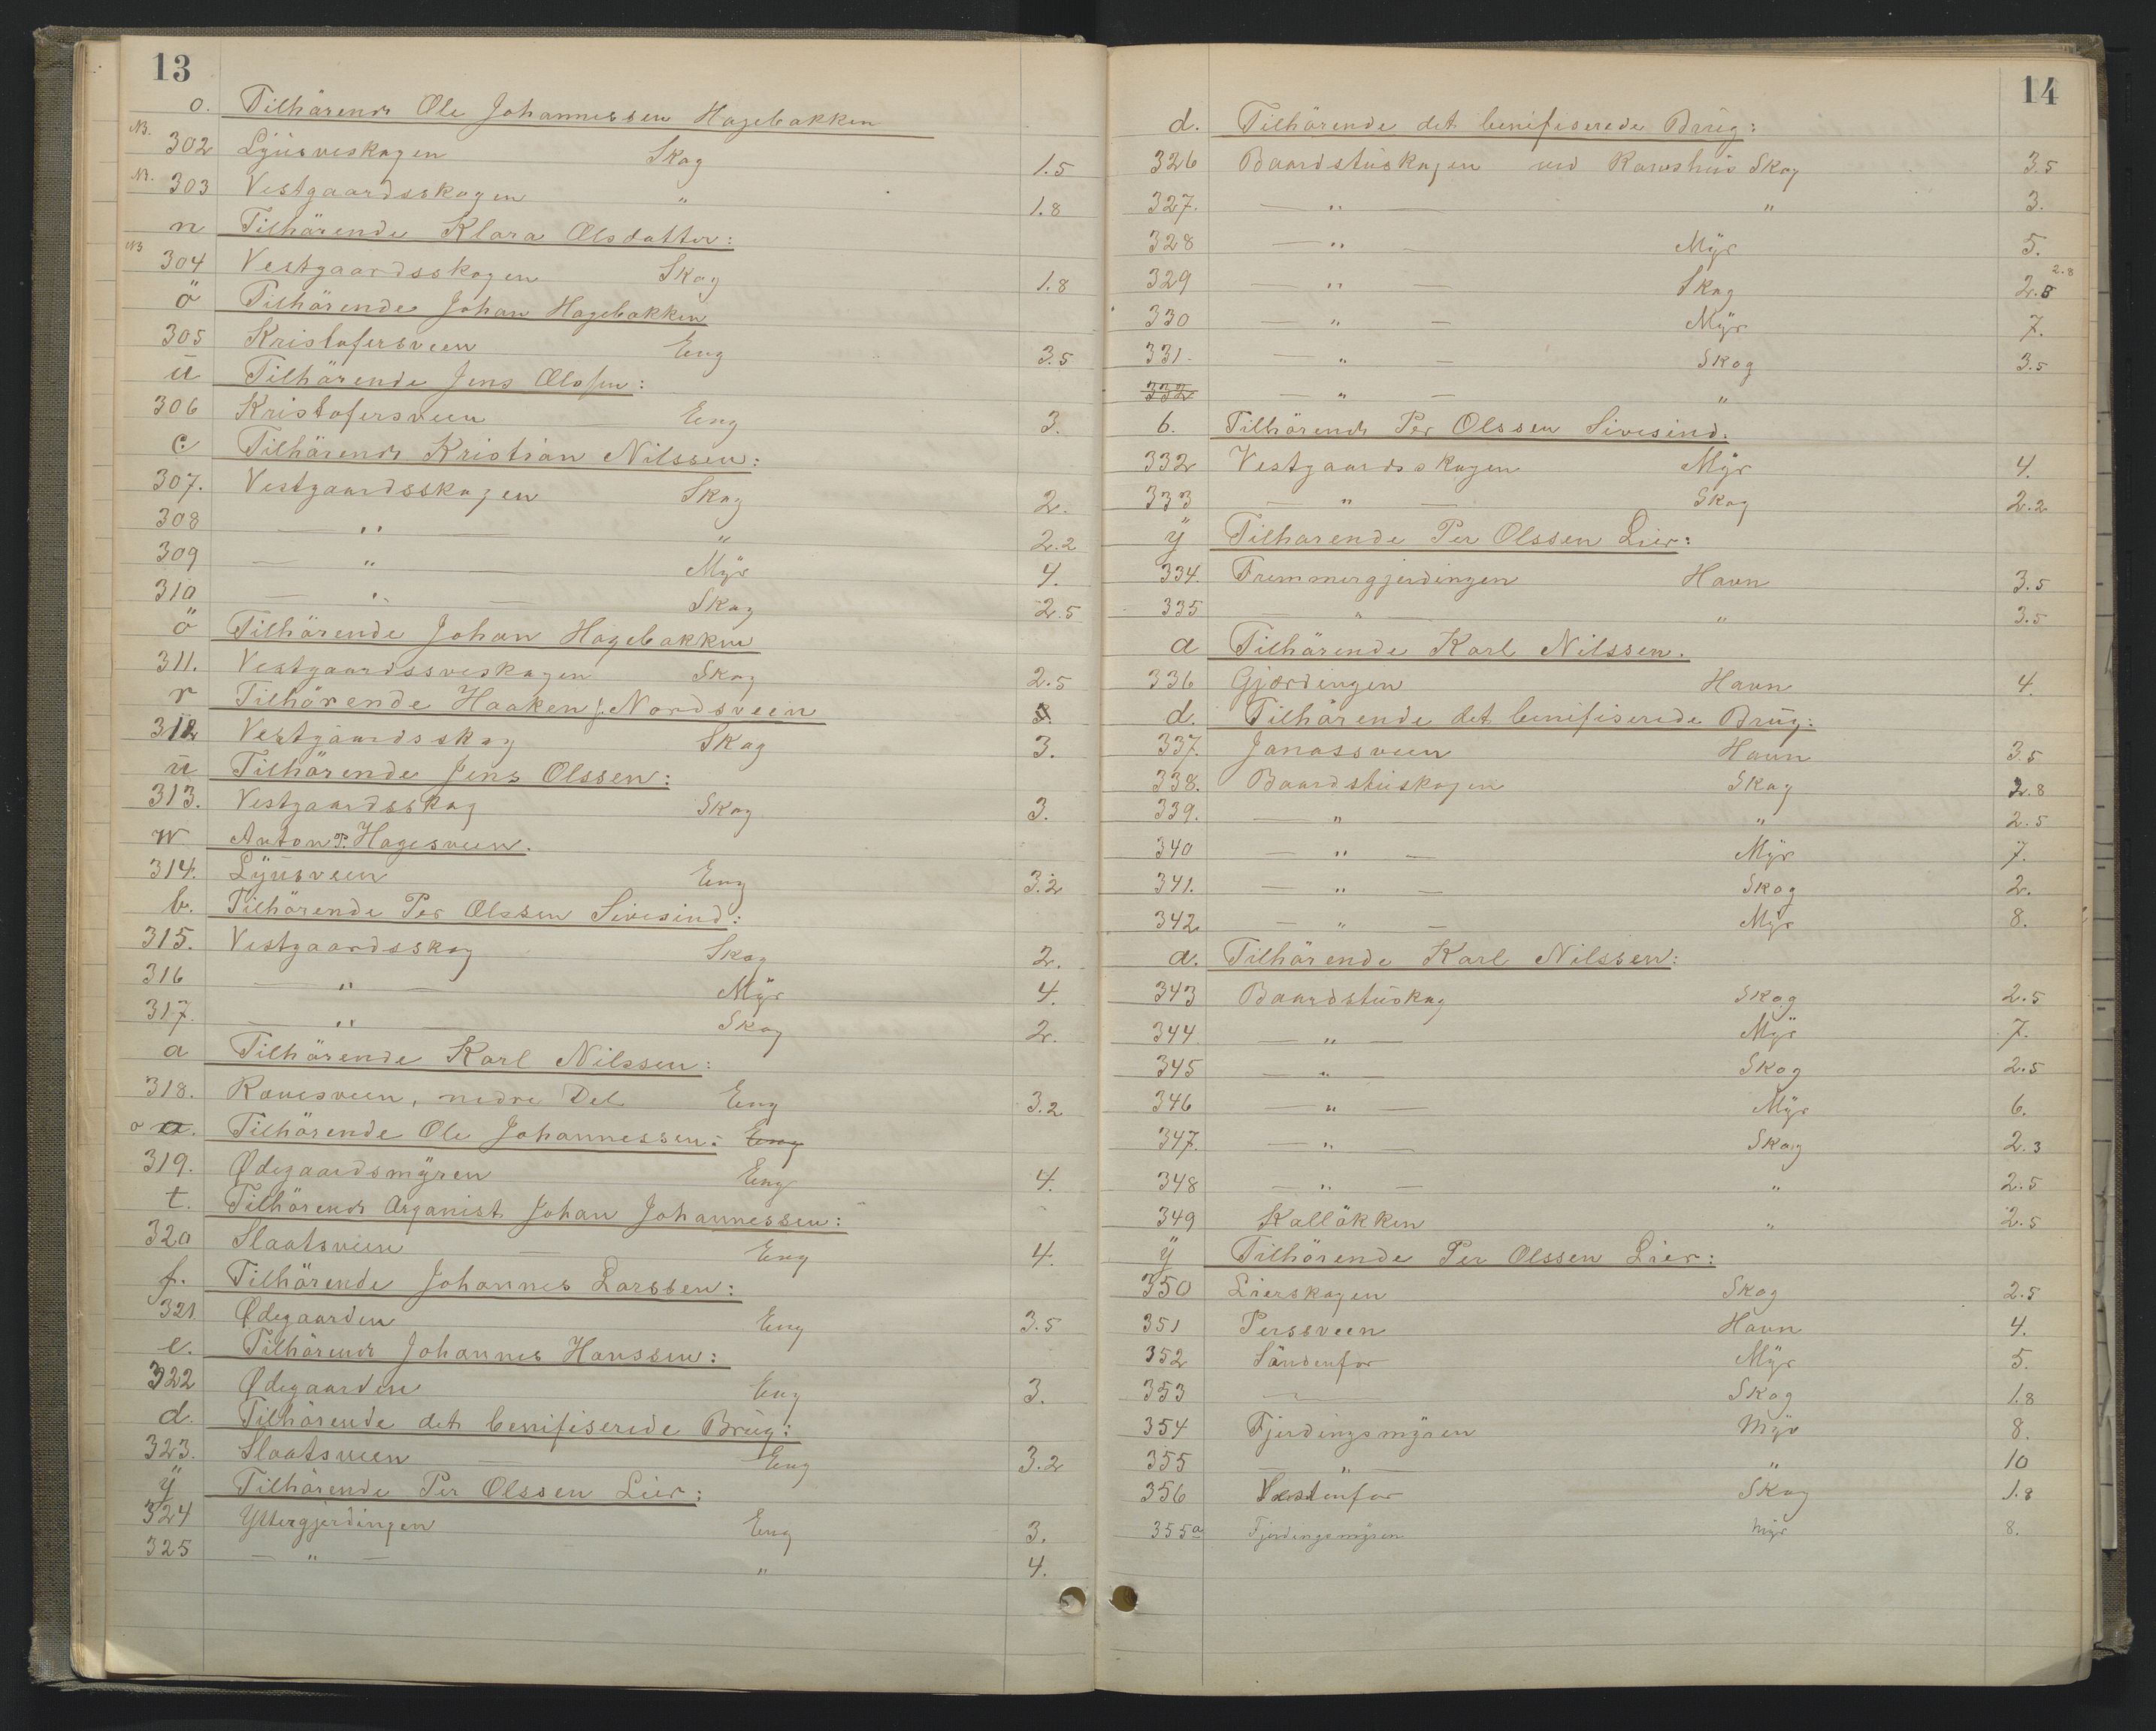 13
o. Tilhörende Ole Johannessen Hagebakken
NB. 302 Ljüsveskogen Skog 1.5
NB. 303 Vestgaardsskogen " 1.8
n Tilhörende Klara Olsdatter:
NB 304 Vestgaardsskogen Skog 1.8
ö Tilhörende Johan Hagebakken
305 Kristofersveen Eng 3.5
ü Tilhörende Jens Olssen:
306 Kristofersveen Eng 3.
c Tilhörende Kristian Nilssen:
307. Vestgaardsskogen Skog 2.
308 — " — " 2.2
309 — " — Myr 4.
310 — " — Skog 2.5
ö Tilhörende Johan Hagebakken
311. Vestgaardssveskogen Skog 2.5
r Tilhörende Haaken J. Nordsveen
312 Vestgaardsskog Skog 3.
u Tilhörende Jens Olssen:
313. Vestgaardsskog Skog 3.
w Anton P. Hagesveen.
314. Lyüsveen Eng 3.2
b. Tilhörende Per Olssen Sivesind:
315. Vestgaardsskog Skog 2.
316 — " — Myr 4.
317. — " — Skog 2.
a Tilhörende Karl Nilssen:
318. Ravesveen, nedre Del Eng 3.2
o a. Tilhörende Ole Johannessen: Eng
319. Ødegaardsmÿren Eng 4.
t. Tilhörende Organist Johan Johannessen:
320 Slaatsveen — Eng 4.
f. Tilhörende Johannes Larssen:
321 Ødegaarden Eng 3.5
e. Tilhörende Johannes Hanssen:
322 Ødegaarden Eng 3.
d. Tilhörende det benifiserede Brüg:
323. Slaatsveen — Eng 3.2
ÿ Tilhörende Per Olssen Lier:
324 Yttergjerdingen Eng 3.
325 — " — " 4.
14
d. Tilhörende det benifiserede Brüg:
326 Baardstüskogen ved Raveshüs Skog 3.5
327. — " — " 3.
328 — " — Mÿr 5.
329 — " — Skog 2.5 2.8
330 — " — Mÿr 7.
331 — " — Skog 3.5
332 — " — "
b. Tilhörende Per Olssen Sivesind:
332 Vestgaardsskogen Mÿr 4.
333 — " — Skog 2.2
ÿ Tilhörende Per Olssen Lier:
334. Fremmergjerdingen Havn 3.5
335 — " — " 3.5
a Tilhörende Karl Nilssen.
336 Gjærdingen Havn 4.
d. Tilhörende det benifiserede Brüg:
337. Janassveen Havn 3.5
338. Baardstüskogen Skog 2.8
339. — " — " 2.5
340 — " — Mÿr 7.
341. — " — Skog 2.
342 — " — Mÿr 8.
a. Tilhörende Karl Nilssen:
343 Baardstüskog Skog 2.5
344 — " — Mÿr 7.
345 — " — Skog 2.5
346 — " — Mÿr 6.
347. — " — Skog 2.3
348 — " — " 2.5
349 Kallökken " 2.5
ÿ Tilhörende Per Olssen Lier:
350 Lierskogen Skog 2.5
351 Perssveen Havn 4.
352 Söndenfor Mÿr 5.
353 — Skog 1.8
354 Fjerdingsmÿren Mÿr 8.
355 — " — " 10
356 Vestenfor Skog 1.8
355a Fjerdingsmÿren Mÿr 8.